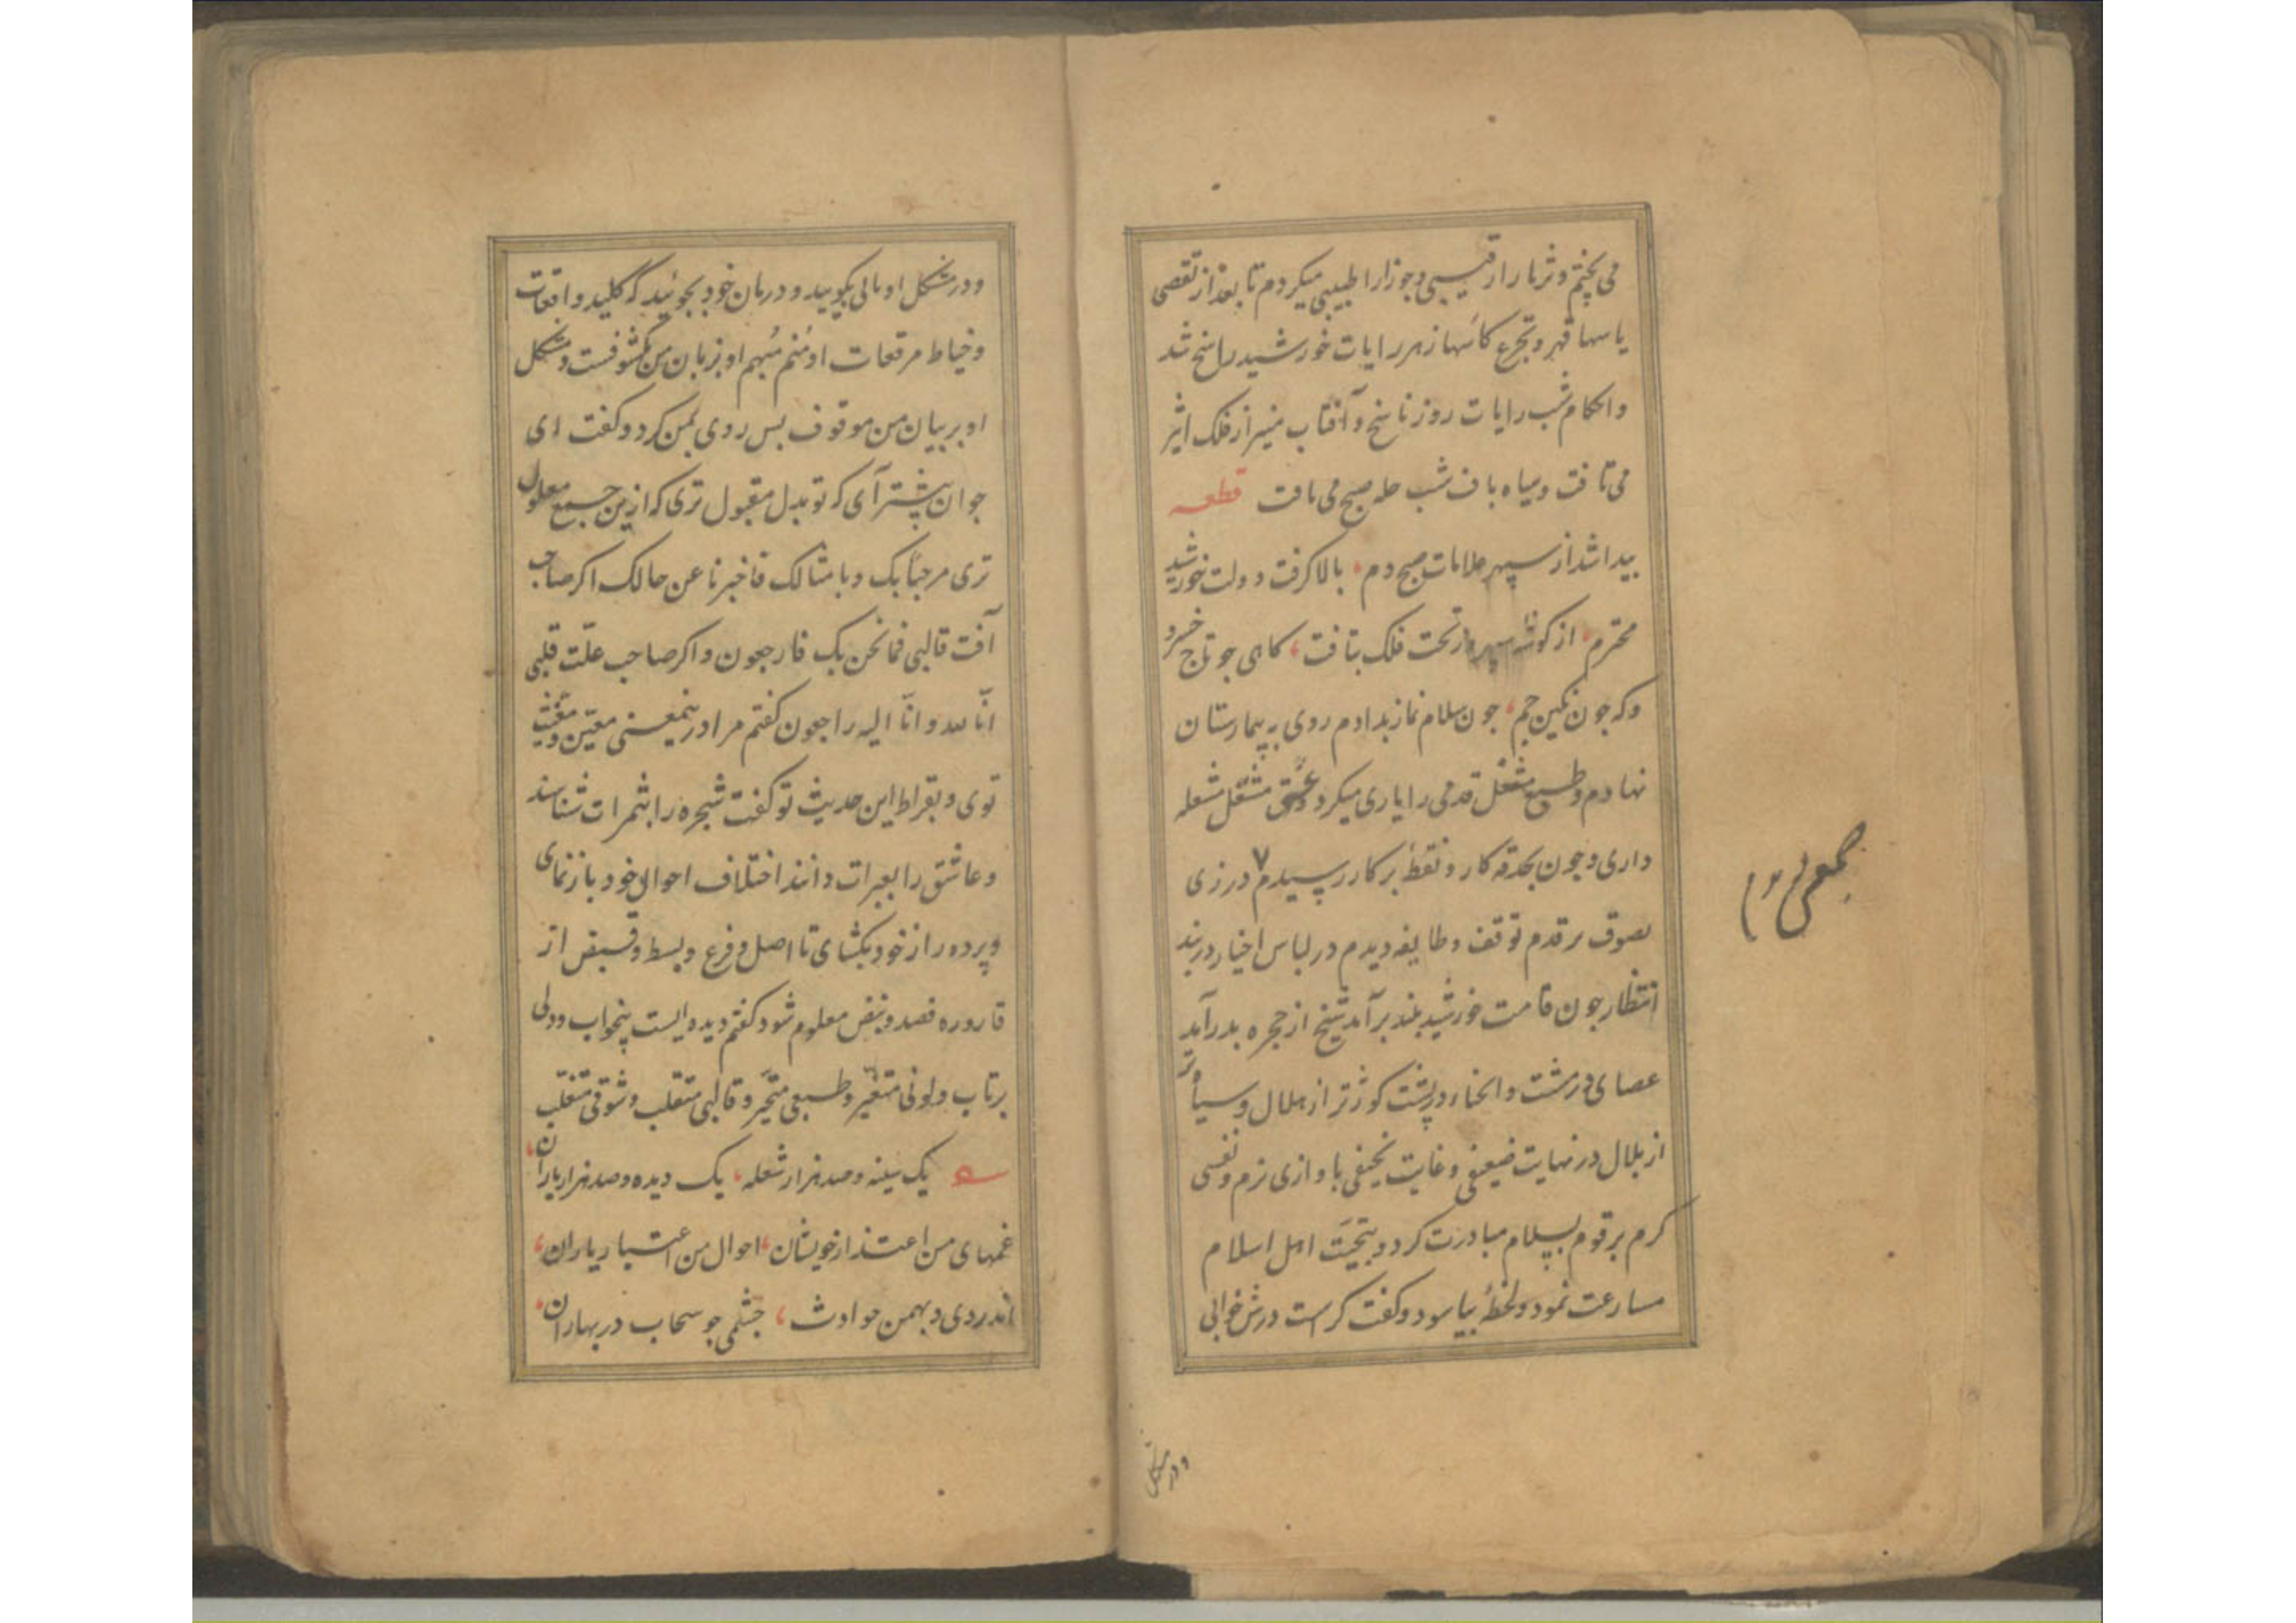 می پختم و ثریا را رقیبی و جوزا را طبیبی میکردم تا بعد از تقصی
یاسها قهر و تجرع کاسها زهر رایات خورشید راسخ شد
و احکام شب را آیات روز ناسخ و آفتاب منیر از فلک اثیر
می تافت و سیاه باف شب حله صبح می بافت قطعه
پیدا شد از سپهر علامات صبح دم، بالا گرفت دولت خورشید
محترم، از گوشه سپهر از تخت فلک بتافت، گاهی چو تاج خسرو
و گه چون نگین جم، چون سلام نماز بدادم روی به بیمارستان
نهادم و طبع مشغل قدمی را یاری میکرد و عشق مشعل مشعله
داری و چون بحدقه کار و نقطه پرکار رسیدم در زی
تصوف بر قدم توقف و طایفه دیدم در لباس اخیار در بند
انتظار چون قامت خورشید بلند برآمد شیخ از حجره بدرآمد
عصای در مشت و انحناء در پشت کوژتر از هلال و سیاه تر
از بلال در نهایت ضعیفی و غایت نحیفی با وازی نرم و نفسی
گرم بر قوم بسلام مبادرت کرد و بتحیت اهل اسلام
مسارعت نمود و لحظهٔ بیاسود و گفت کراست درش خوابی
ودر مشکل
جمعی را
ودر مشکل او مالی بگویید و درمان خود بجوئید که کلید واقعات
و خیاط مرقعات او منم مبهم او بزبان من مکشوفست و مشکل
او بر بیان من موقوف بس روی بمن کرد و گفت ای
جوان پیشتر آی که تو بدل مقبول تری که ازین جمع معلول
تری مرحبا بک و بامثالک فاخبرنا عن حالک اگر صاحب
آفت قالبی فما نحن بک فارجعون و اگر صاحب علّت قلبی
انّا لله و انّا الیه راجعون گفتم مرا درینمعنی معین و مغیث
توی و بقراط این حدیث تو گفت شجره را بثمرات شناسند
و عاشق را بعبرات دانند اختلاف احوال خود بازنمای
و پرده راز خود بگشای تا اصل و فرع و بسط و قبض از
قاروره فصد و نبض معلوم شود گفتم دیده ایست بیخواب و دلی
پرتاب و لونی متغیر و طبعی متحیر و قالبی متقلب و شوقی متغلب
یک سینه و صد هزار شعله، یک دیده و صد هزار باران،
غمهای من اعتذار خویشان، احوال من اعتبار یاران،
اندر دی و بهمن حوادث، چشمی چو سحاب در بهاران،